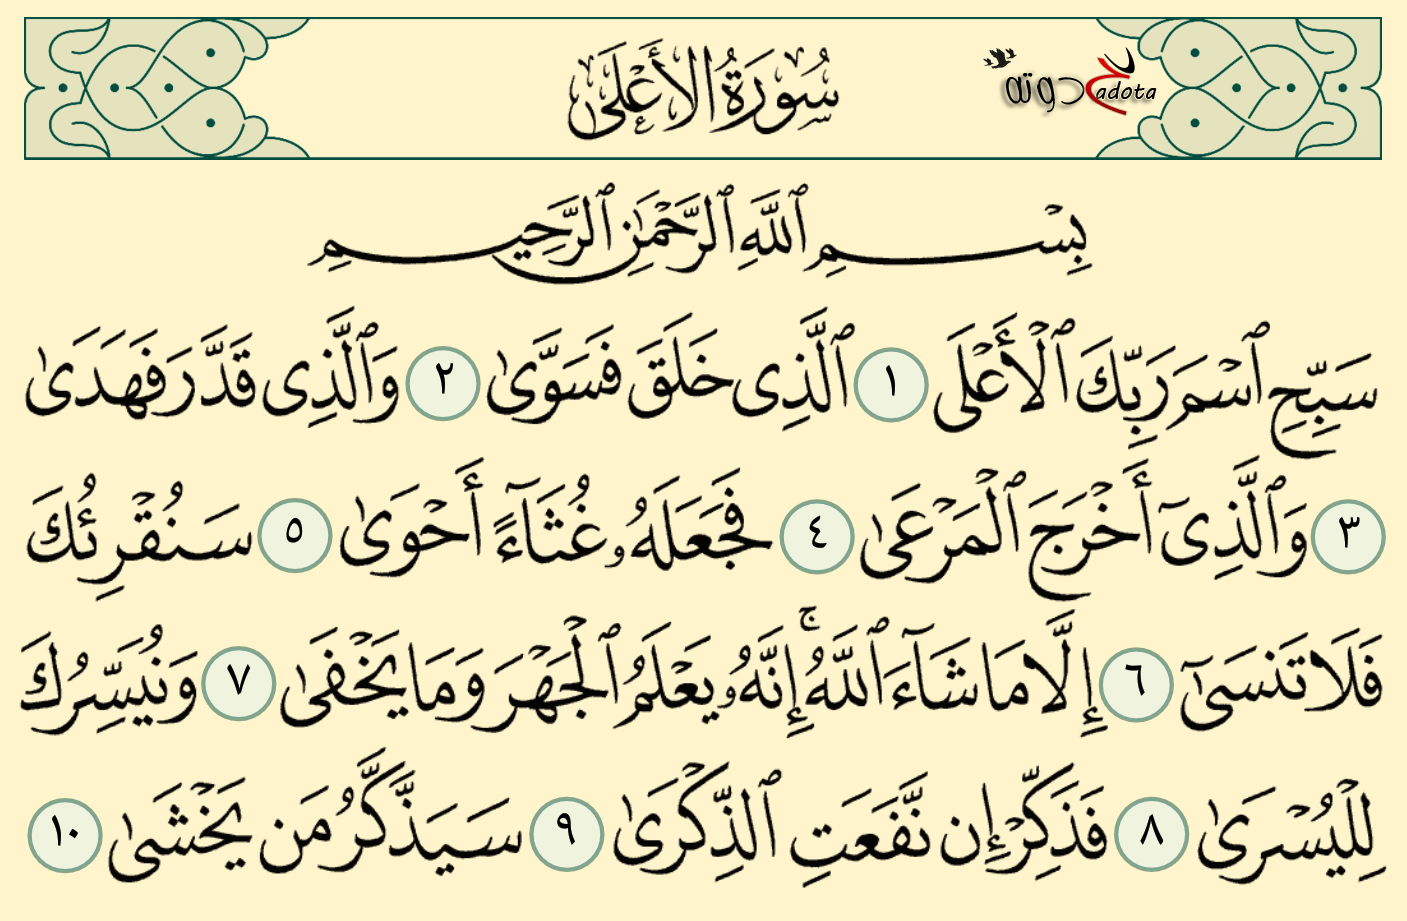 سُورَةُ الأَعْلَى
حدوتة adota
بِسْمِ ٱللَّهِ ٱلرَّحْمَٰنِ ٱلرَّحِيمِ
سَبِّحِ ٱسْمَ رَبِّكَ ٱلْأَعْلَى ١ ٱلَّذِى خَلَقَ فَسَوَّىٰ ٢ وَٱلَّذِى قَدَّرَ فَهَدَىٰ
٣ وَٱلَّذِىٓ أَخْرَجَ ٱلْمَرْعَىٰ ٤ فَجَعَلَهُۥ غُثَآءً أَحْوَىٰ ٥ سَنُقْرِئُكَ
فَلَا تَنسَىٰٓ ٦ إِلَّا مَا شَآءَ ٱللَّهُ ۚ إِنَّهُۥ يَعْلَمُ ٱلْجَهْرَ وَمَا يَخْفَىٰ ٧ وَنُيَسِّرُكَ
لِلْيُسْرَىٰ ٨ فَذَكِّرْ إِن نَّفَعَتِ ٱلذِّكْرَىٰ ٩ سَيَذَّكَّرُ مَن يَخْشَىٰ ١٠